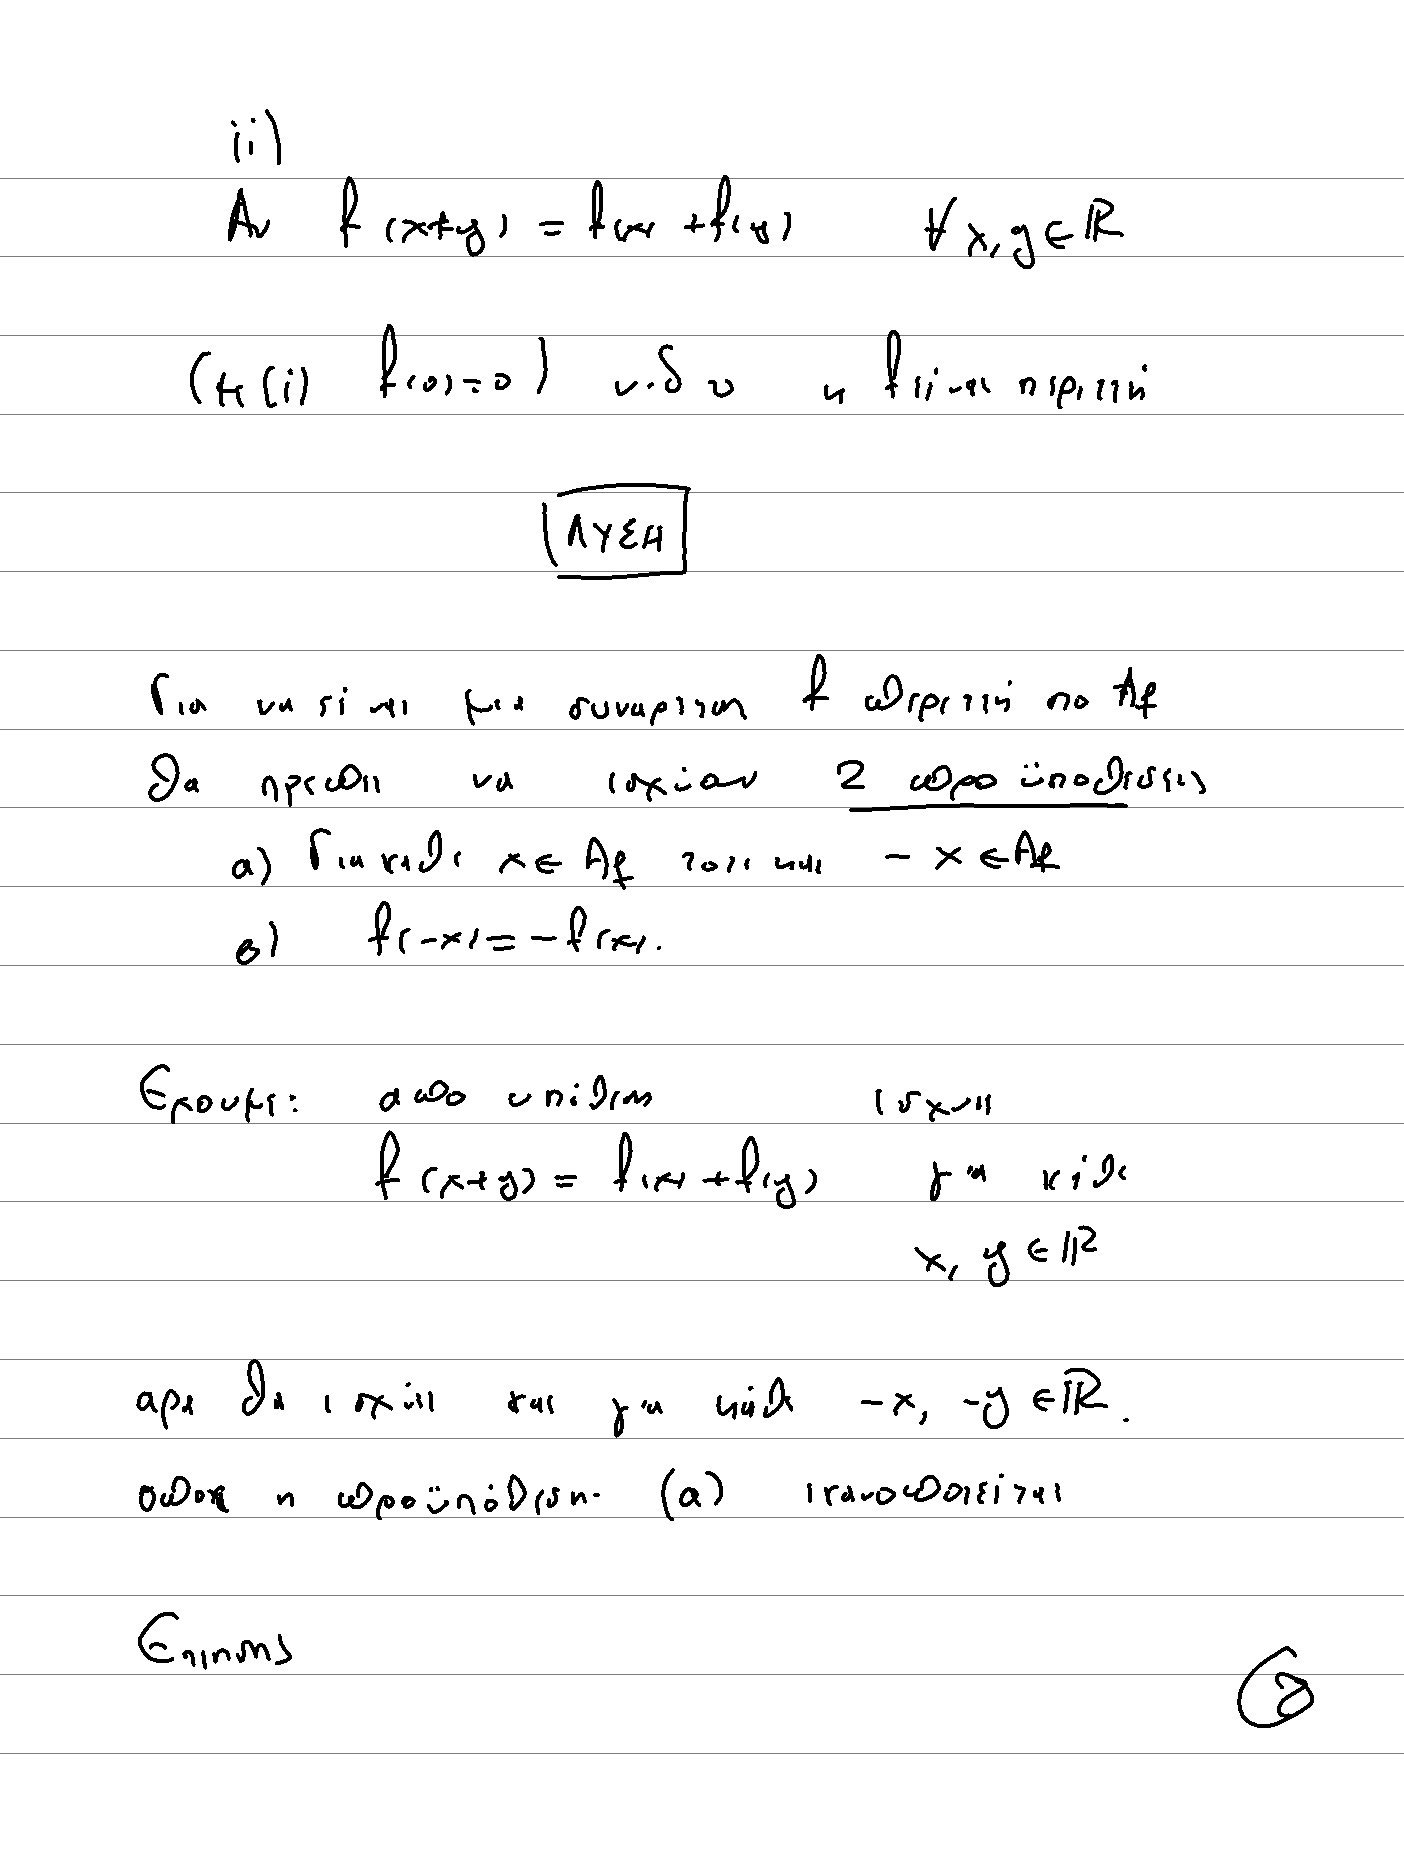 ii)
Αν f(x+y) = f(x) + f(y) ∀ x, y ∈ ℝ
f(0)=0) ν.δ.ο η f είναι περιττή
ΛΥΣΗ
Για να είναι μια συναρτηση f περιττή στο Af
θα πρεπει να ισχύουν 2 προϋποθεσεις
α) Για καθε x ∈ Af τοτε και -x ∈ Af
β) f(-x) = -f(x).
Εχουμε: απο υπόθεση ισχυει
f(x+y) = f(x) + f(y) για κάθε
x, y ∈ ℝ
αρα θα ισχύει και για κάθε -x, -y ∈ ℝ.
οποτε η προϋπόθεση (α) ικανοποιείται
Επισης
2